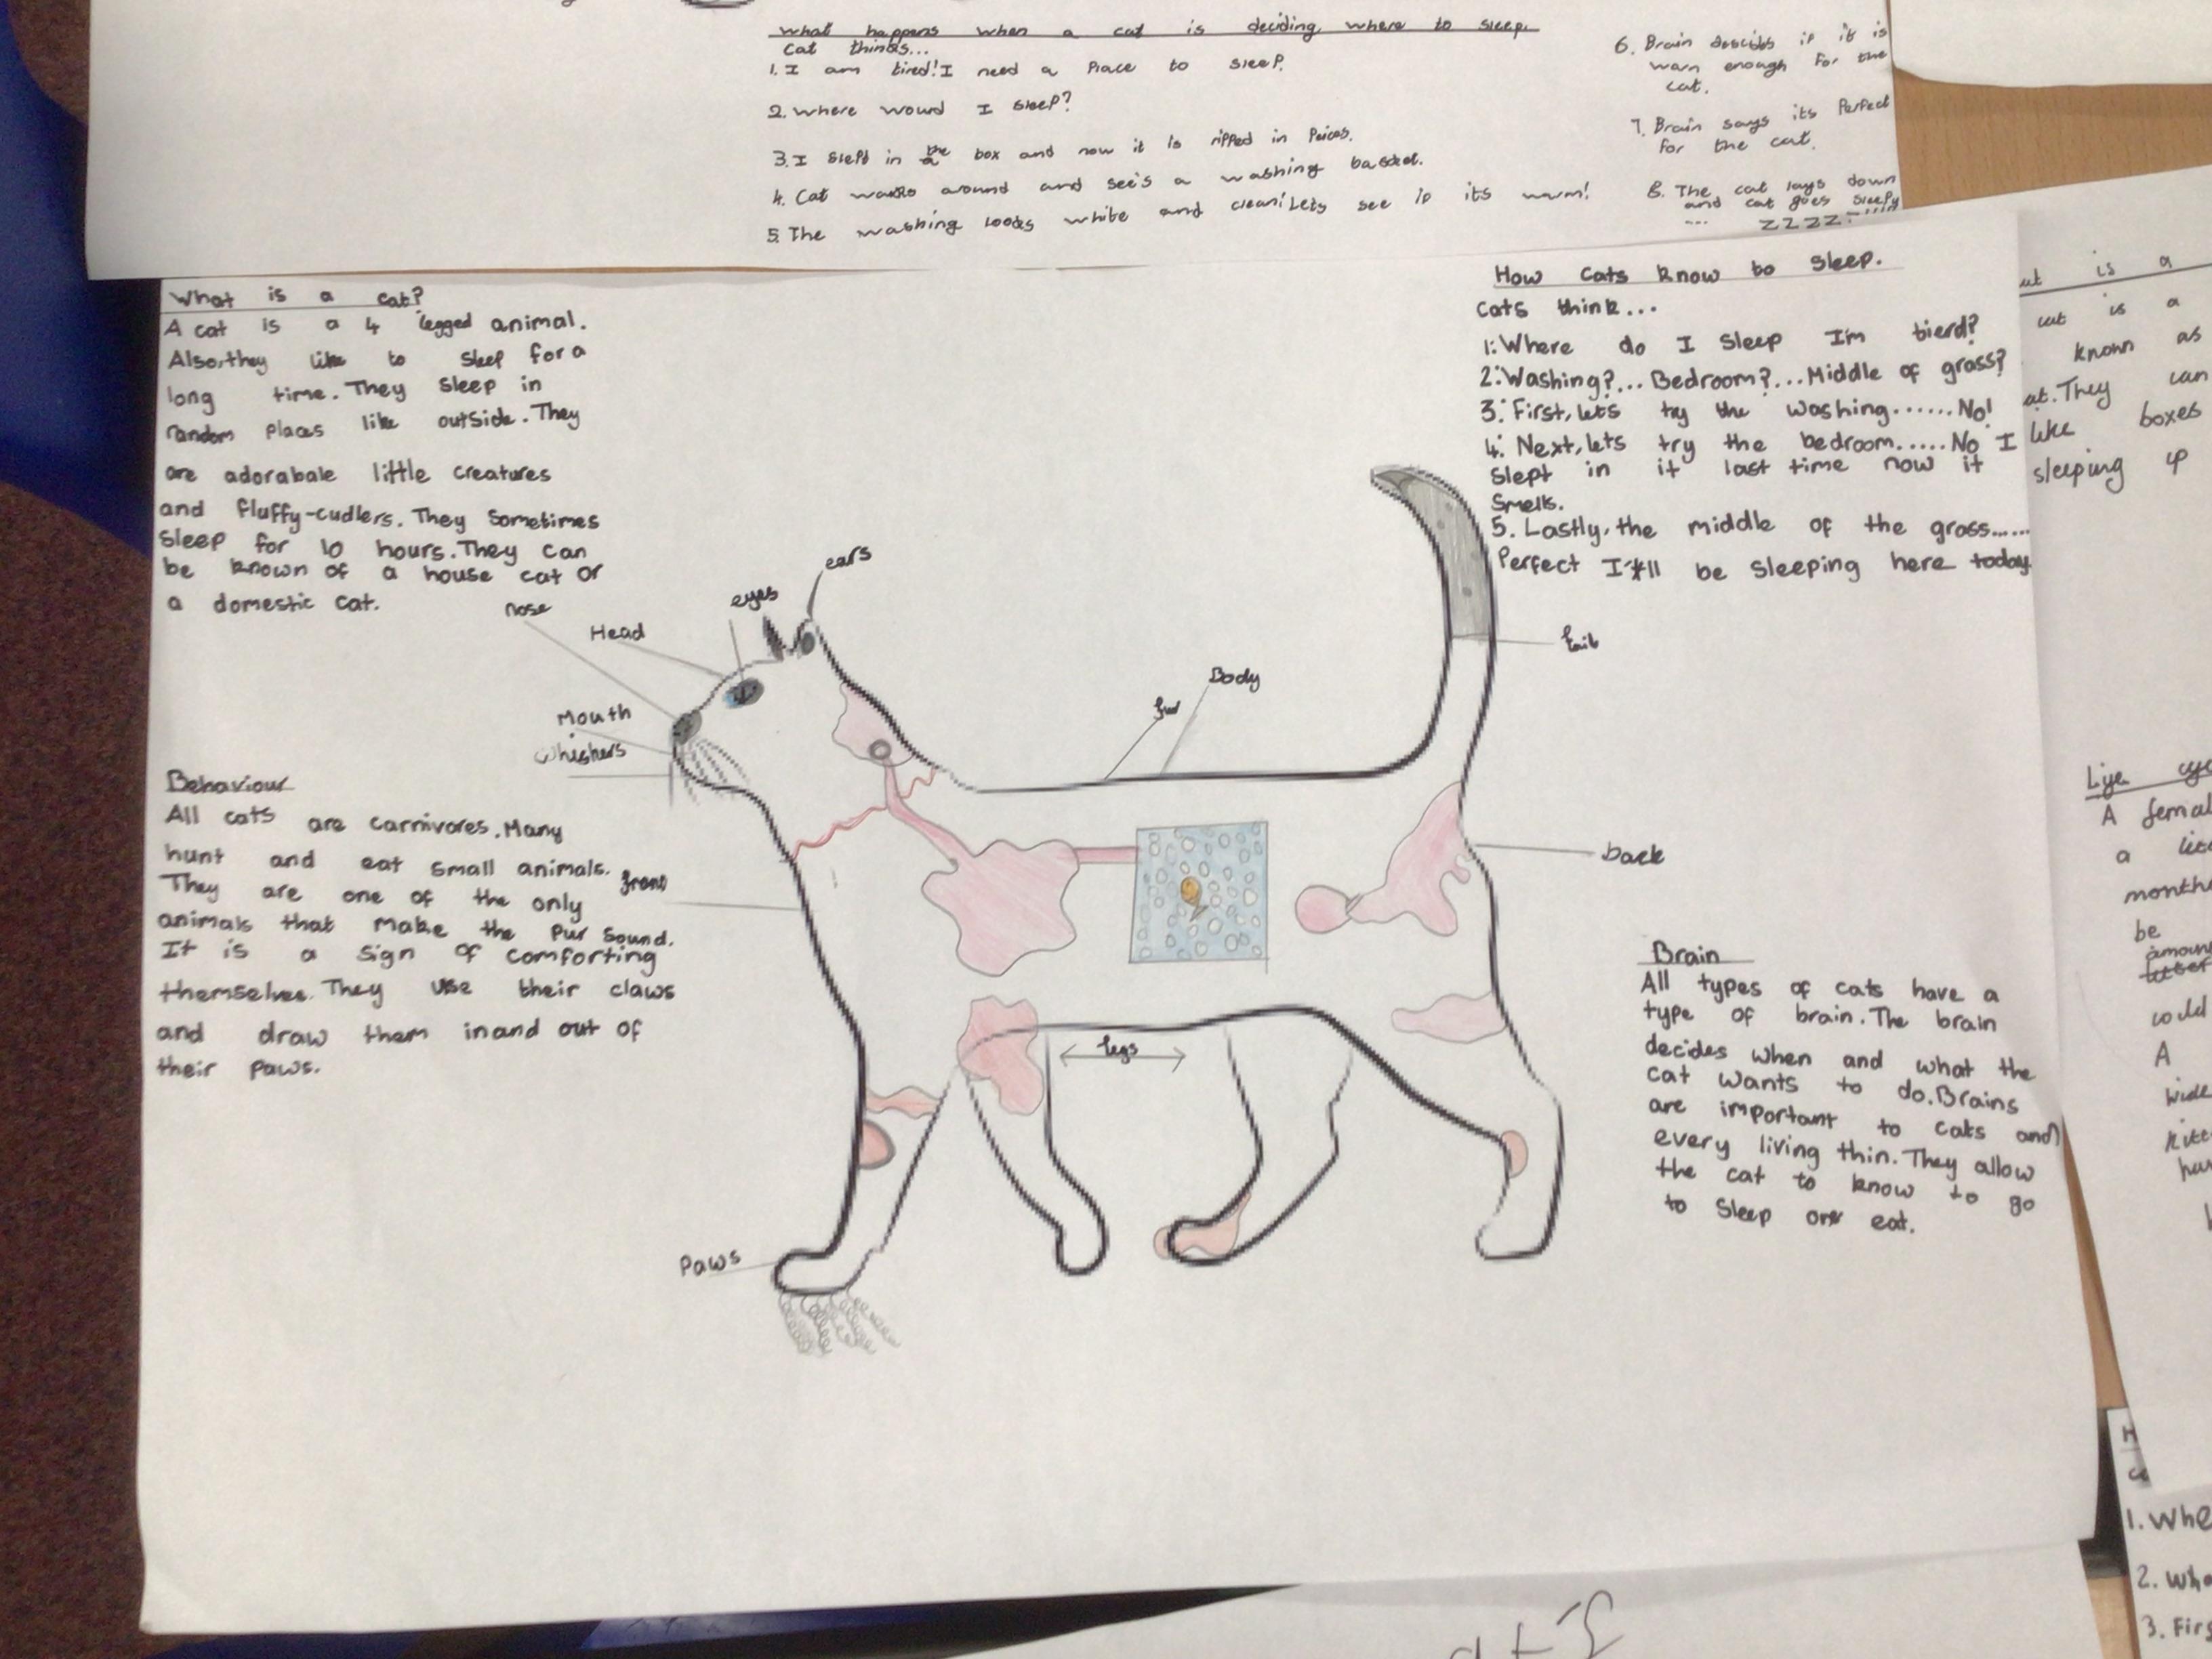 What happens when a cat is deciding where to sleep.
Cat thinks...
1. I am tired! I need a Place to sleeP.
2. Where woud I sleeP?
3. I slePt in the box and now it is ripped in Peices.
4. Cat walks around and see's a washing basket.
5. The washing looks white and clean! Lets see if its warm!
6. Brain descids if it is
warn enough For the
cat.
7. Brain says its Perfect
for the cat.
8. The cat lays down
and cat goes sleepy
... ZZZZ
What is a cat?
A cat is a 4 legged animal.
Also,they like to sleep for a
long time. They sleep in
random places like outside. They
are adorabale little creatures
and fluffy-cudlers. They sometimes
sleep for 10 hours. They can
be known of a house cat or
a domestic cat.
How cats know to sleep.
Cats think...
1: Where do I sleep I'm tierd?
2: Washing?... Bedroom?... Middle of grass?
3: First, lets try the washing....... No!
4: Next, lets try the bedroom..... No I
slept in it last time now it
smells.
5. Lastly, the middle of the grass......
Perfect I'll be sleeping here today
nose
Head
eyes
ears
Mouth
whiskers
fur
Body
tail
back
front
legs
Paws
Behaviour
All cats are carnivores. Many
hunt and eat small animals.
They are one of the only
animals that make the pur sound.
It is a sign of comforting
themselves. They use their claws
and draw them in and out of
their paws.
Brain
All types of cats have a
type of brain. The brain
decides when and what the
cat wants to do. Brains
are important to cats and
every living thin. They allow
the cat to know to go
to sleep or eat.
is a
cat is a
known as
at. They can
like boxes
sleeping
Life
A
a
be
A
1. Whe
2. Whe
3. Firs